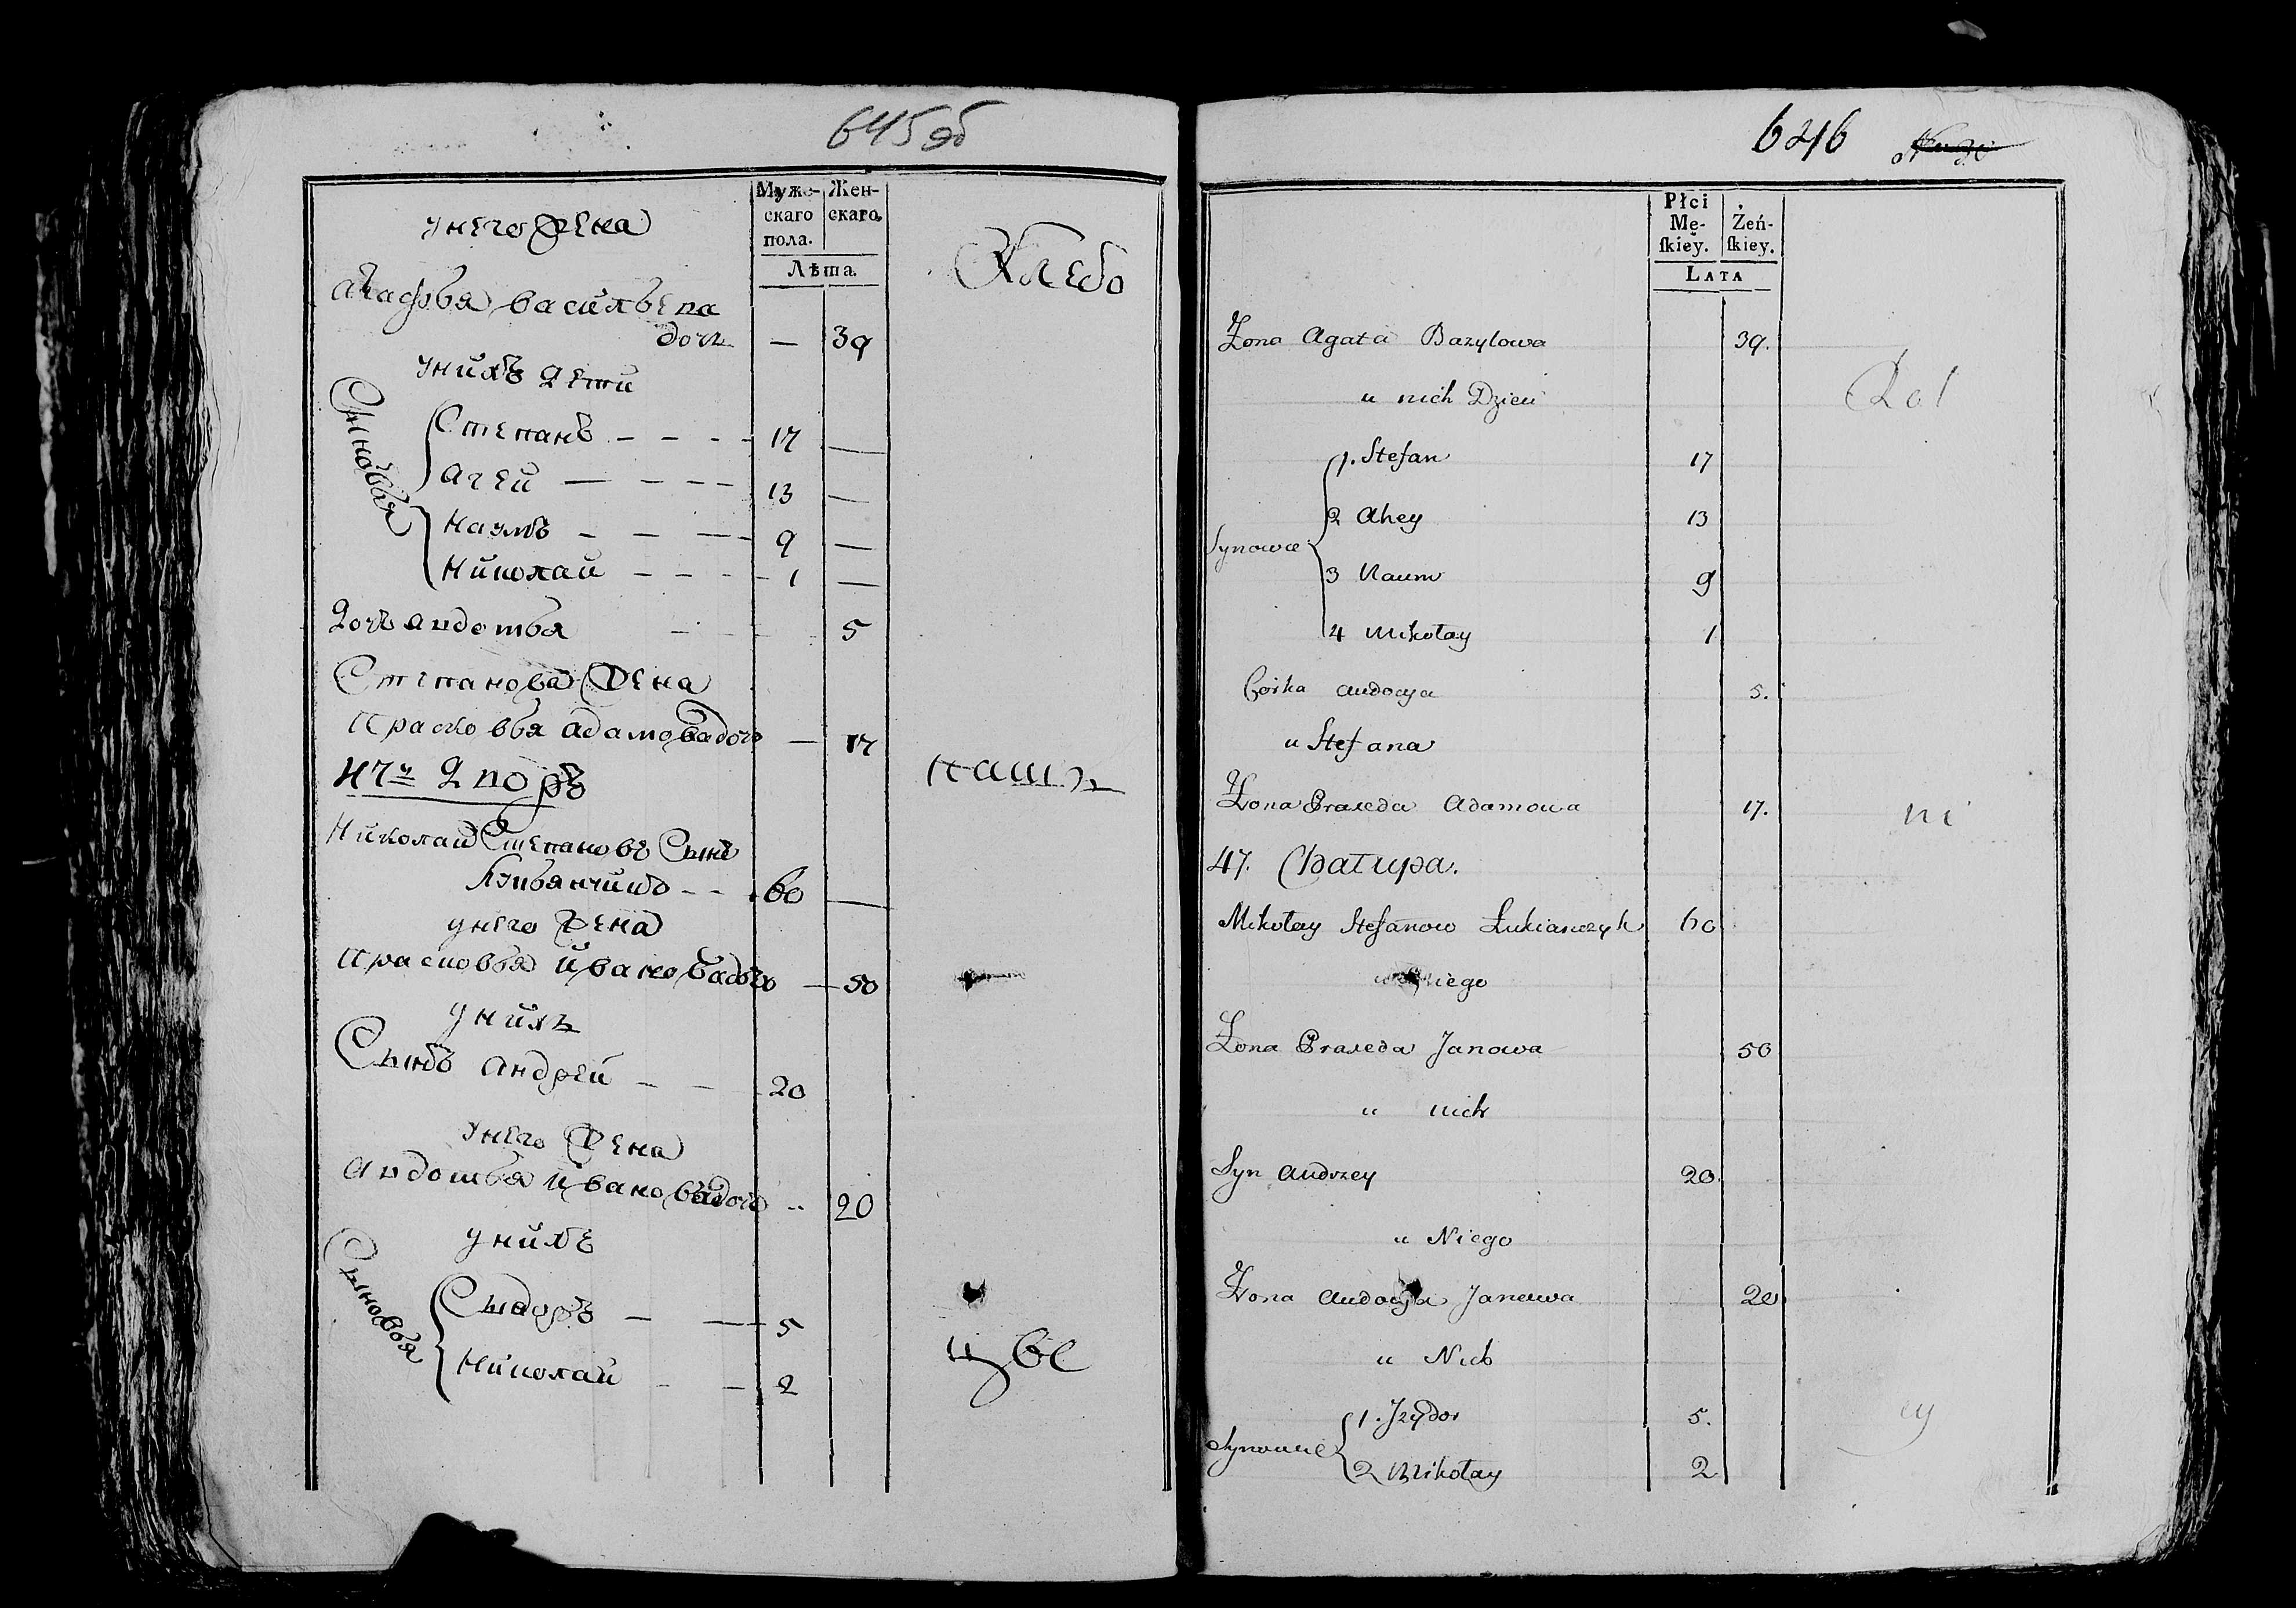 645 об
Муже-
скаго
пола.
Жен-
скаго.
Лѣта.
унего жена
Агафья васильева
дочь — 39
унихъ дети
Сыновья
Степанъ - - - 17 —
Агей — - - - 13 —
Наумъ - - - - 9 —
Николай - - - - 1 —
дочь авдотья - - 5
Степанова жена
Прасковья адамовадочь — 17
47й дворъ
Николай Степановъ Сынъ
Лукьянчикъ - - 60 —
унего жена
Прасковья ивановадочь — 50
унихъ
Сынъ андрей - - 20
унего жена
авдотья ивановадочь - 20
унихъ
Сыновья
Сидоръ - — 5
Николай - - 2
Хлебо
пашц
цве
646
Płci
Mę-
skiey.
Żeń-
skiey.
LATA
Żona Agata Bazylowa 39.
u nich Dzieci
Synowie
1. Stefan 17
2 Ahey 13
3 Naum 9
4 Mikołay 1
Corka Audocya 5.
u Stefana
Żona Praxeda Adamowa 17.
47. Chatupa.
Mikołay Stefanow Łukianczyk 60
niego
Żona Praxeda Janowa 50
u nich
Syn Andrzey 20
u Niego
Żona Audocya Janowa 20
u Nich
Synowie
1. Jzydor 5.
2 Mikołay 2
Rol
ni